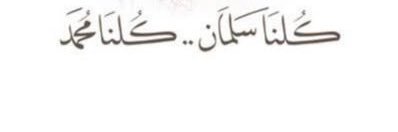 كُلنَا سَلمَان .. كُلنَا مُحمَد